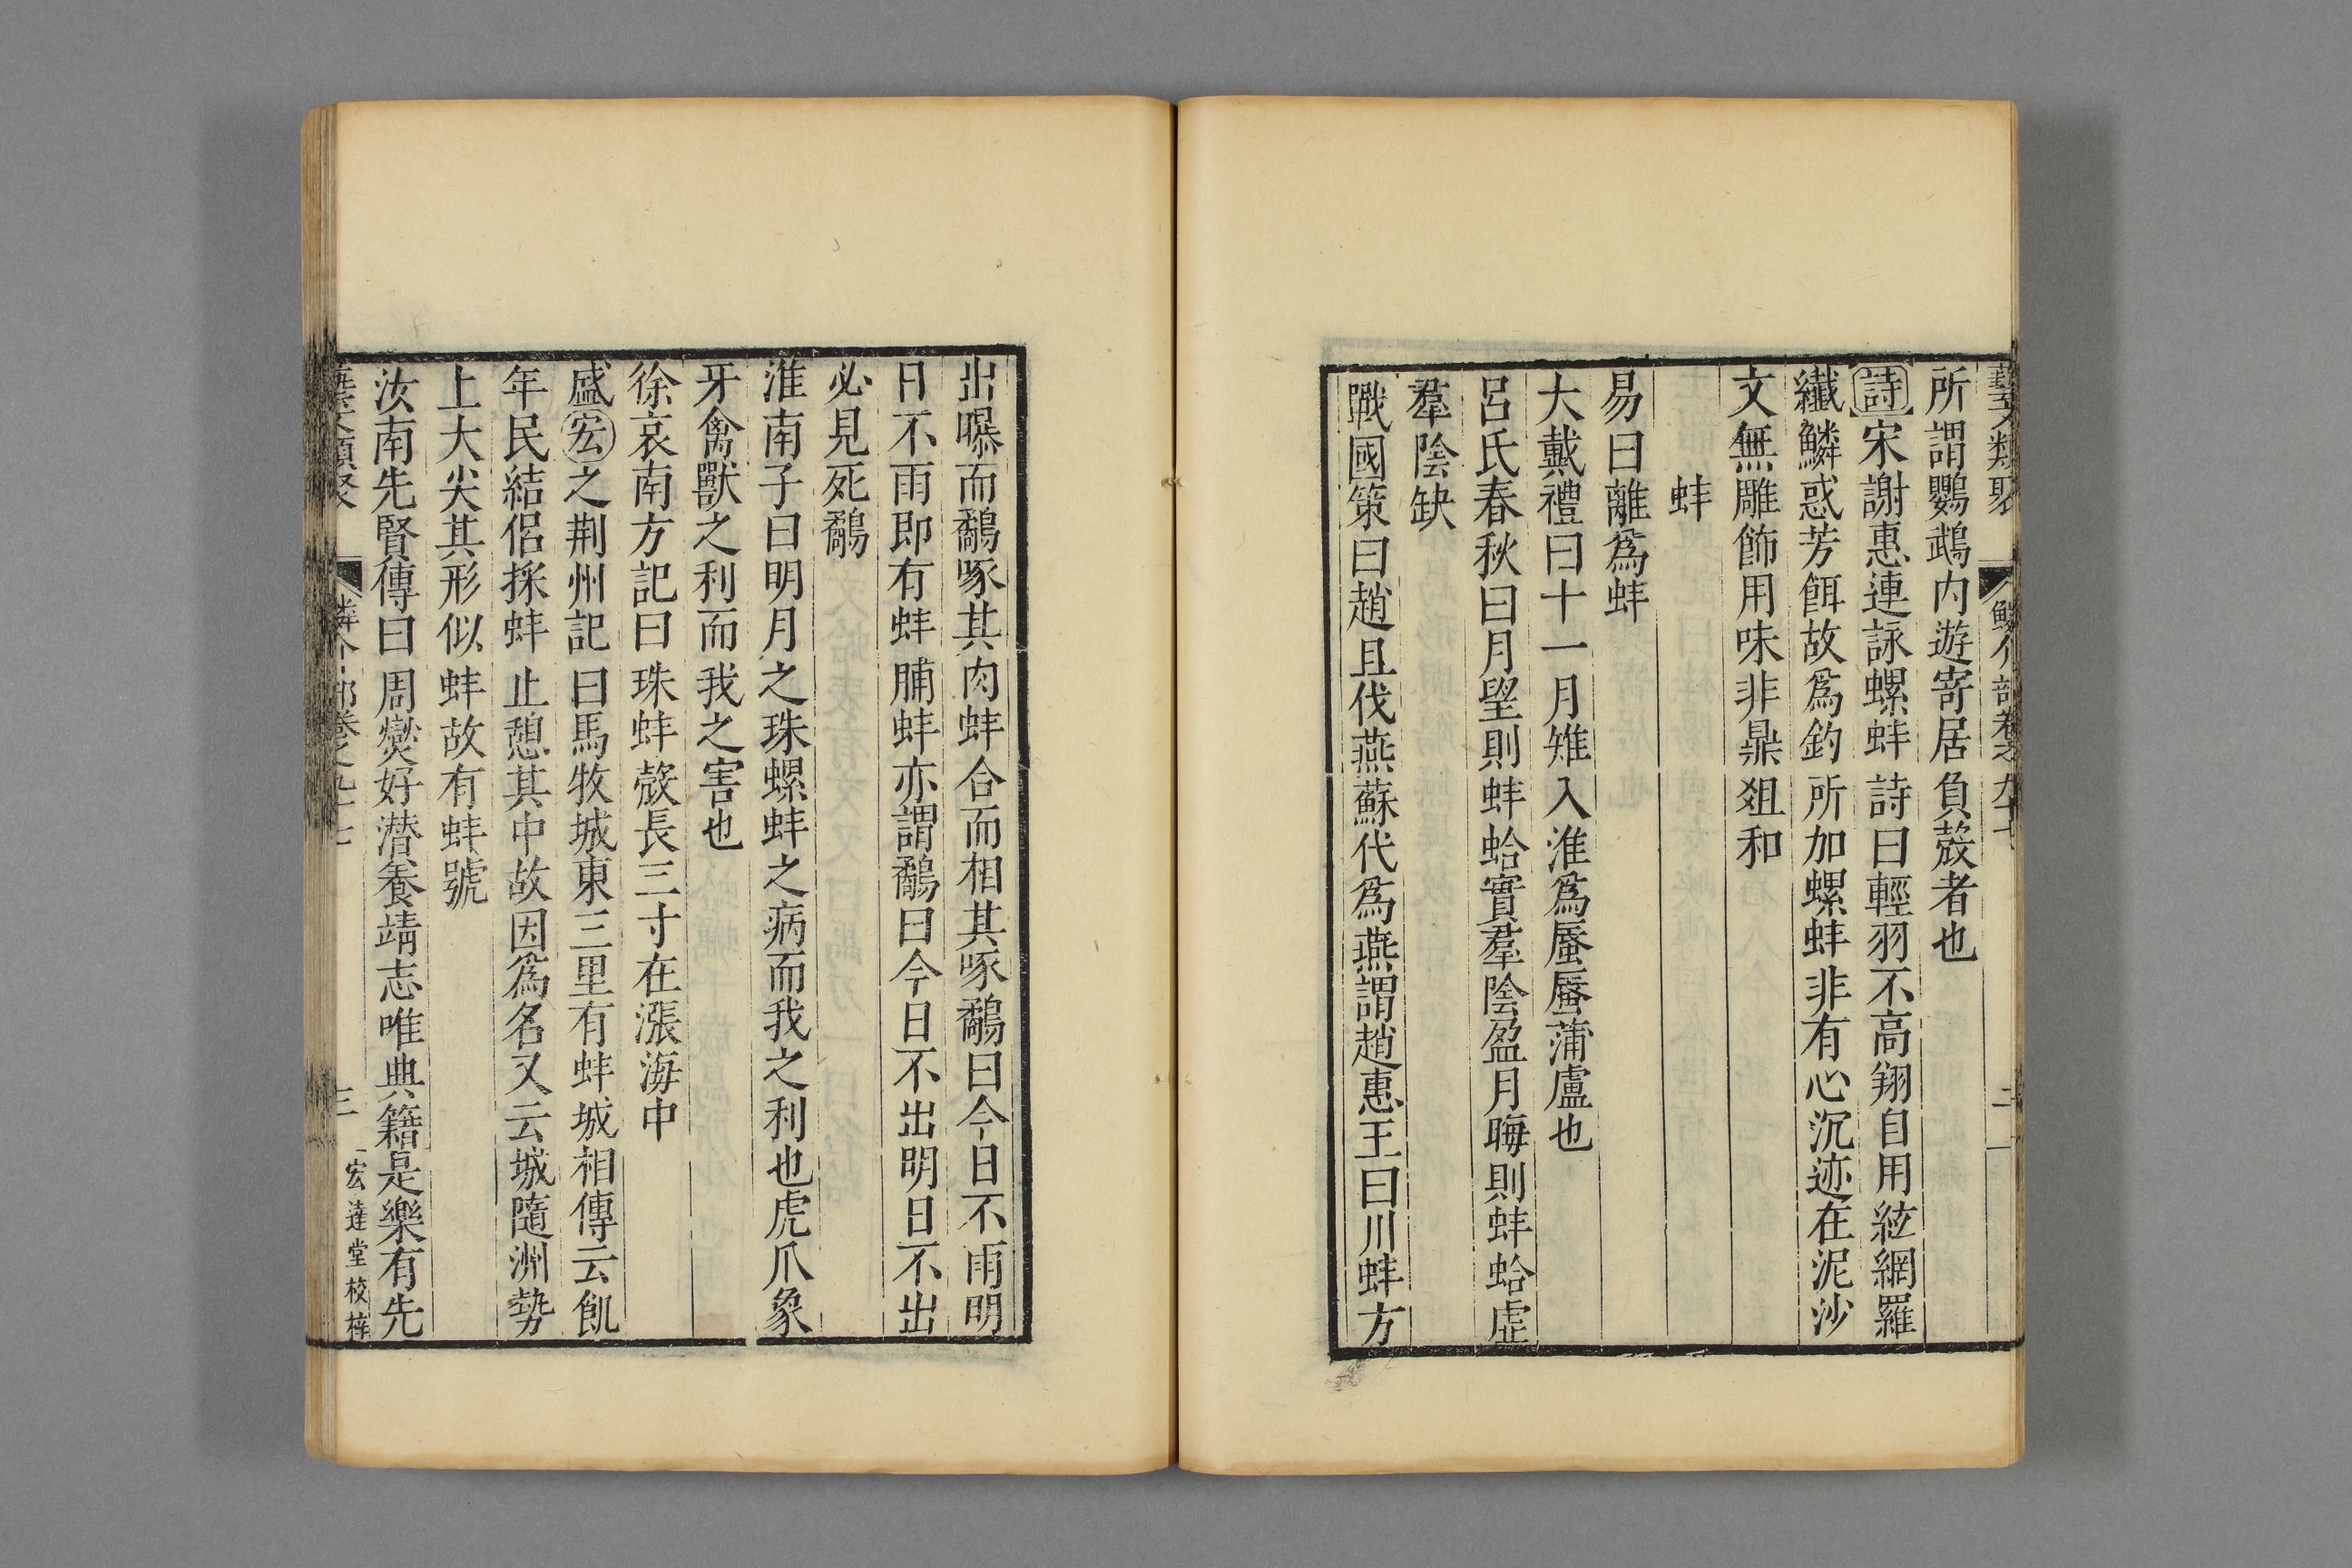 藝文類聚 鱗介部卷之九十七 二
所謂鸚鵡內遊寄居負殼者也
詩宋謝惠連詠螺蚌詩曰輕羽不高翔自用絃網羅
纖鱗惑芳餌故爲釣所加螺蚌非有心沉迹在泥沙
文無雕飾用味非鼎爼和
蚌
易曰離爲蚌
大戴禮曰十一月雉入淮爲蜃蜃蒲盧也
呂氏春秋曰月望則蚌蛤實羣陰盈月晦則蚌蛤虛
羣陰缺
戰國策曰趙且伐燕蘇代爲燕謂趙惠王曰川蚌方
出曝而鷸啄其肉蚌合而相其啄鷸曰今日不雨明
日不雨即有蚌脯蚌亦謂鷸曰今日不出明日不出
必見死鷸
淮南子曰明月之珠螺蚌之病而我之利也虎爪象
牙禽獸之利而我之害也
徐哀南方記曰珠蚌殼長三寸在漲海中
盛宏之荆州記曰馬牧城東三里有蚌城相傳云飢
年民結侶採蚌止憩其中故因爲名又云城隨洲勢
上大尖其形似蚌故有蚌號
汝南先賢傳曰周爕好潜養靖志唯典籍是樂有先
藝文類聚 鱗介部卷之九十七 三 宏達堂校梓